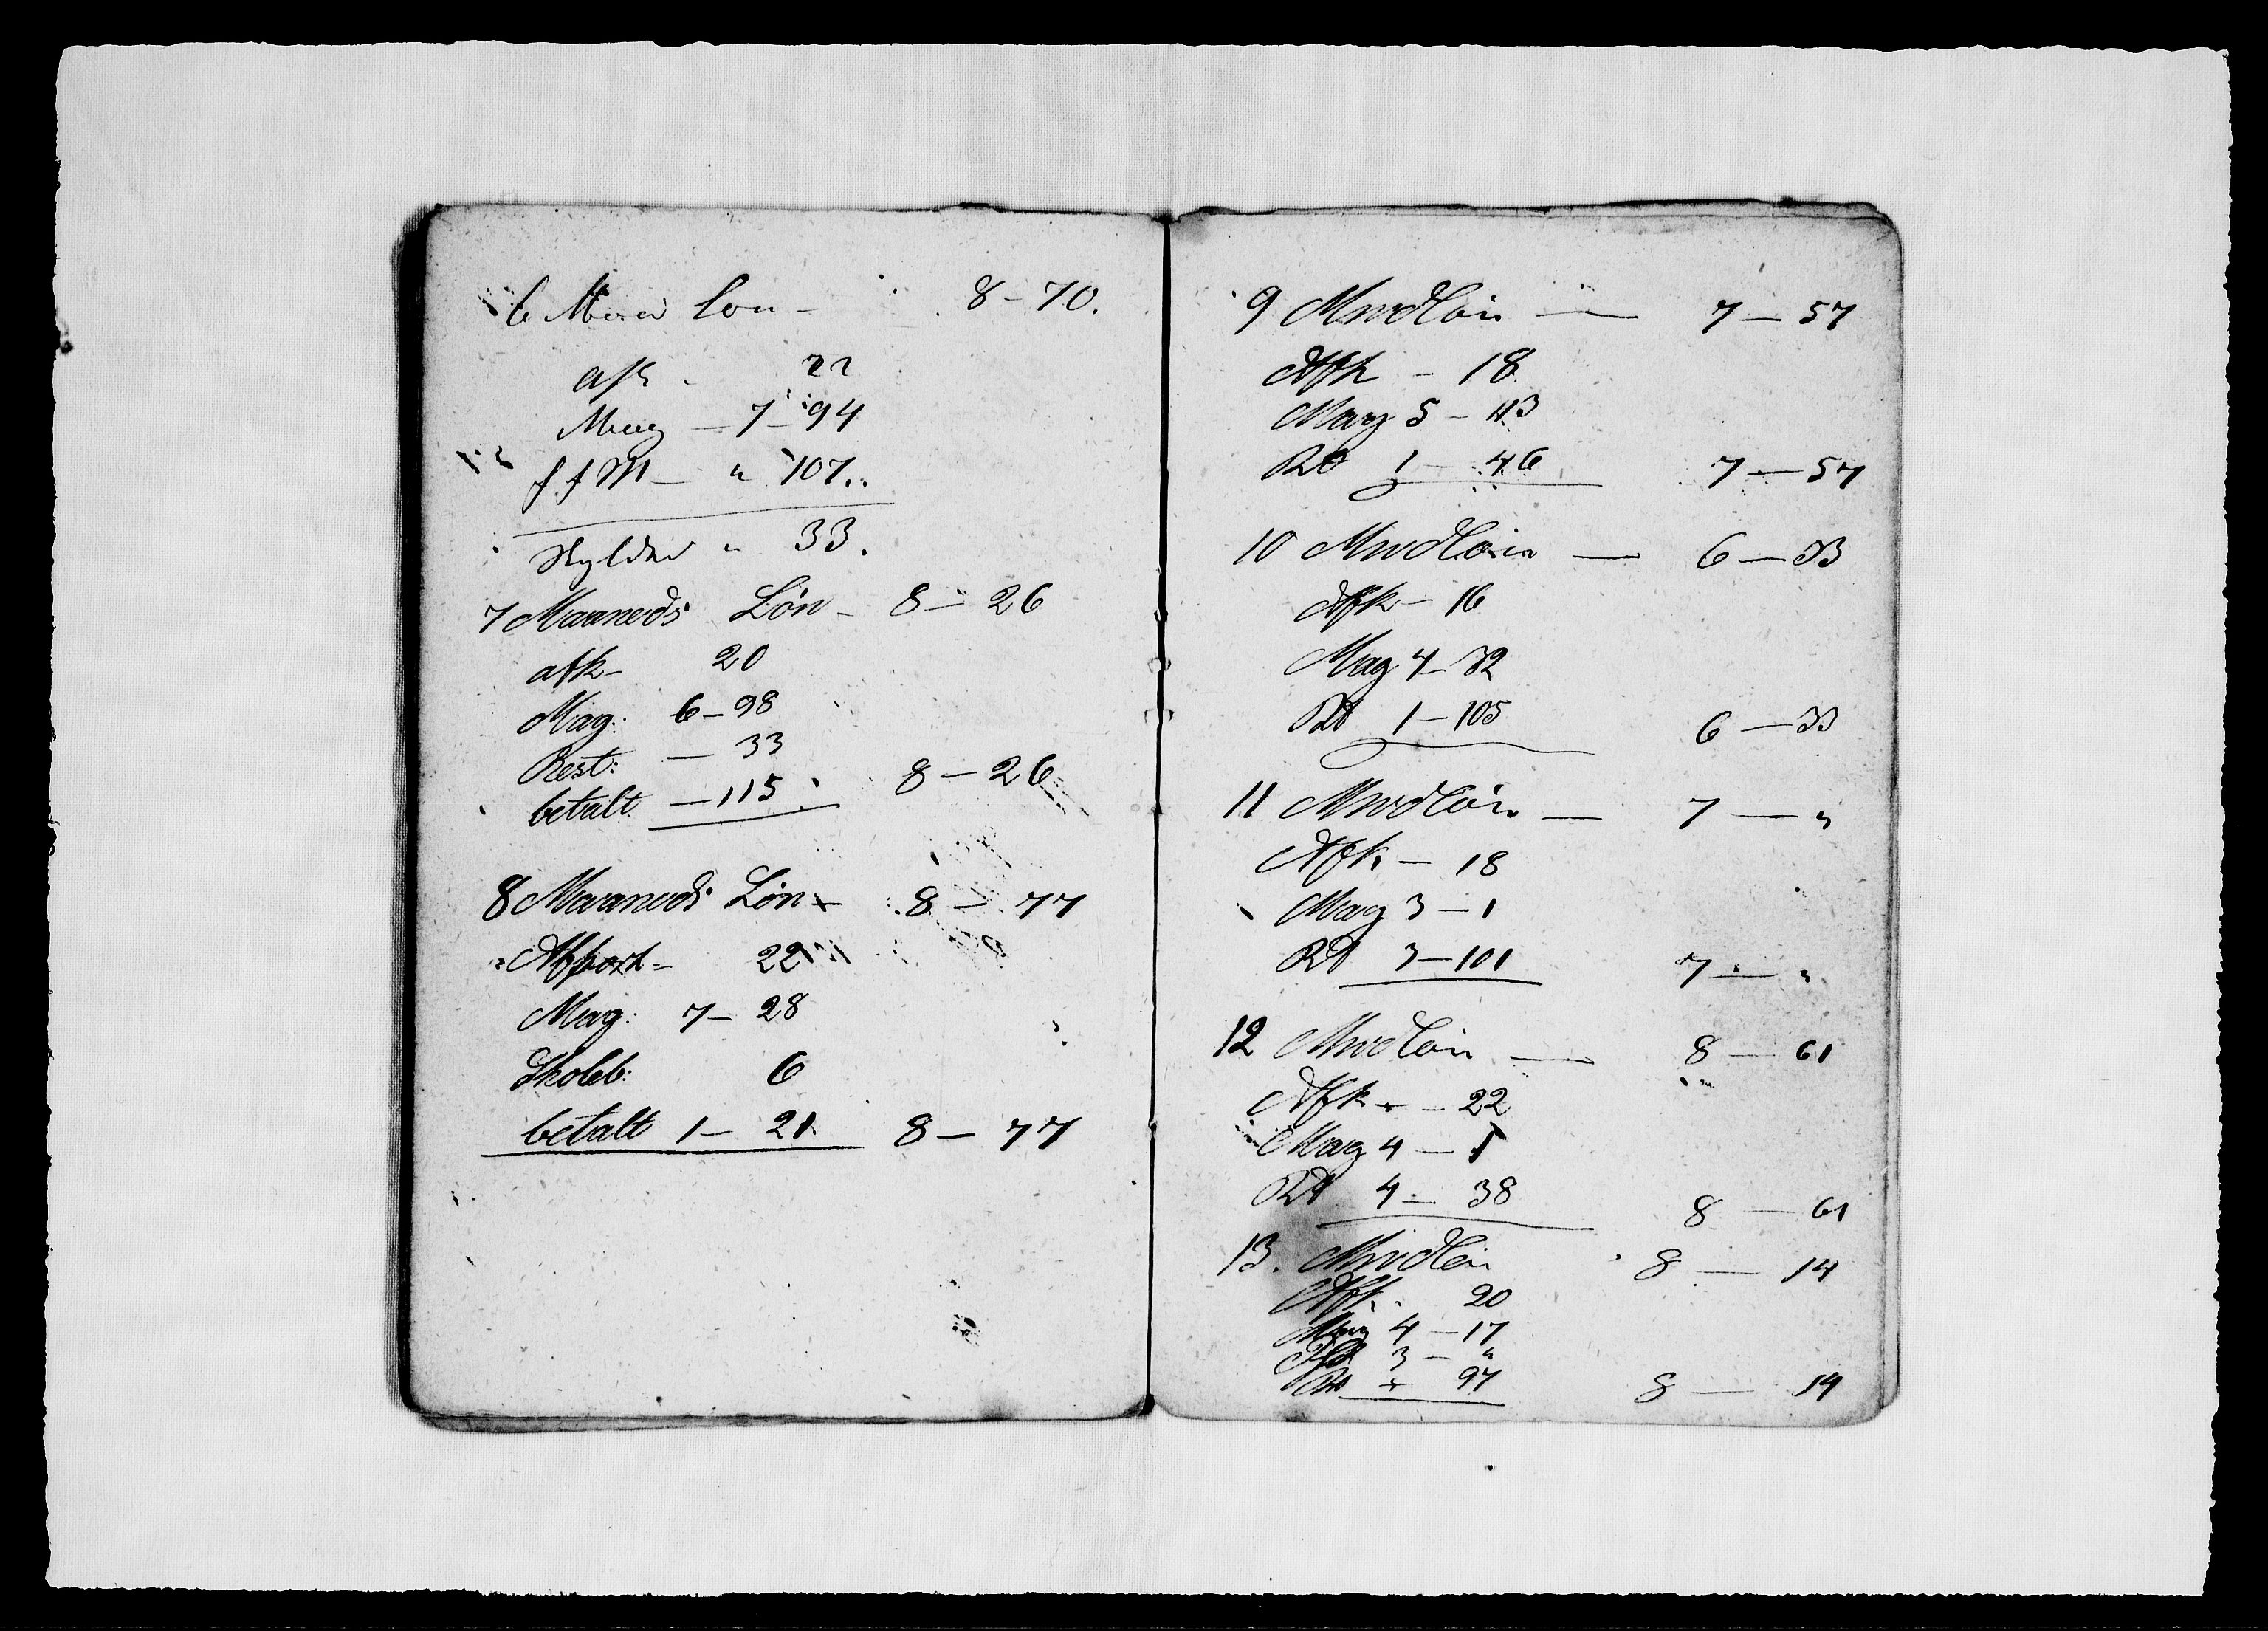 6 Maa Lon - 8 - 70.
afk - 22
Mag - 7 - 94
f f M - " 107.
Skylder " 33.
7 Maaneds Lön - 8 - 26
afk - 20
Mag: 6 - 98
Rest: - 33
betalt - 115 8 - 26
8 Maaneds Lön - 8 - 77
Afkort - 22
Mag: 7 - 28
Skoleb: 6
betalt 1 - 21 8 - 77
9 Mndlön - 7 - 57
Afk - 18
Mag 5 - 113
Rd 1 - 46 7 - 57
10 Mndlön - 6 - 33
Afk - 16
Mag 4 - 32
Rd 1 - 105 6 - 33
11 Mndlön - 7 - "
Afk - 18
Mag 3 - 1
Rd 3 - 101 7 - "
12 Mndlön - 8 - 61
Afk - 22
Mag 4 - 1
Rd 4 - 38 8 - 61
13. Mndlön 8 - 14
Afk. 20
Mag 4 - 17
3 - "
97 8 - 14